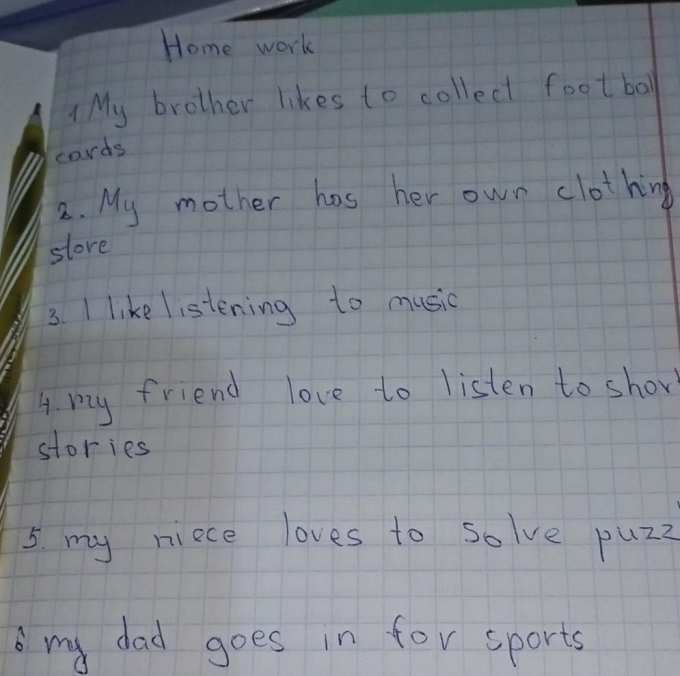 Home work
1 My brother likes to collect football
cards
2. My mother has her own clothing
store
3. I like listening to music
4. my friend love to listen to short
stories
5. my niece loves to solve puzz
6 my dad goes in for sports